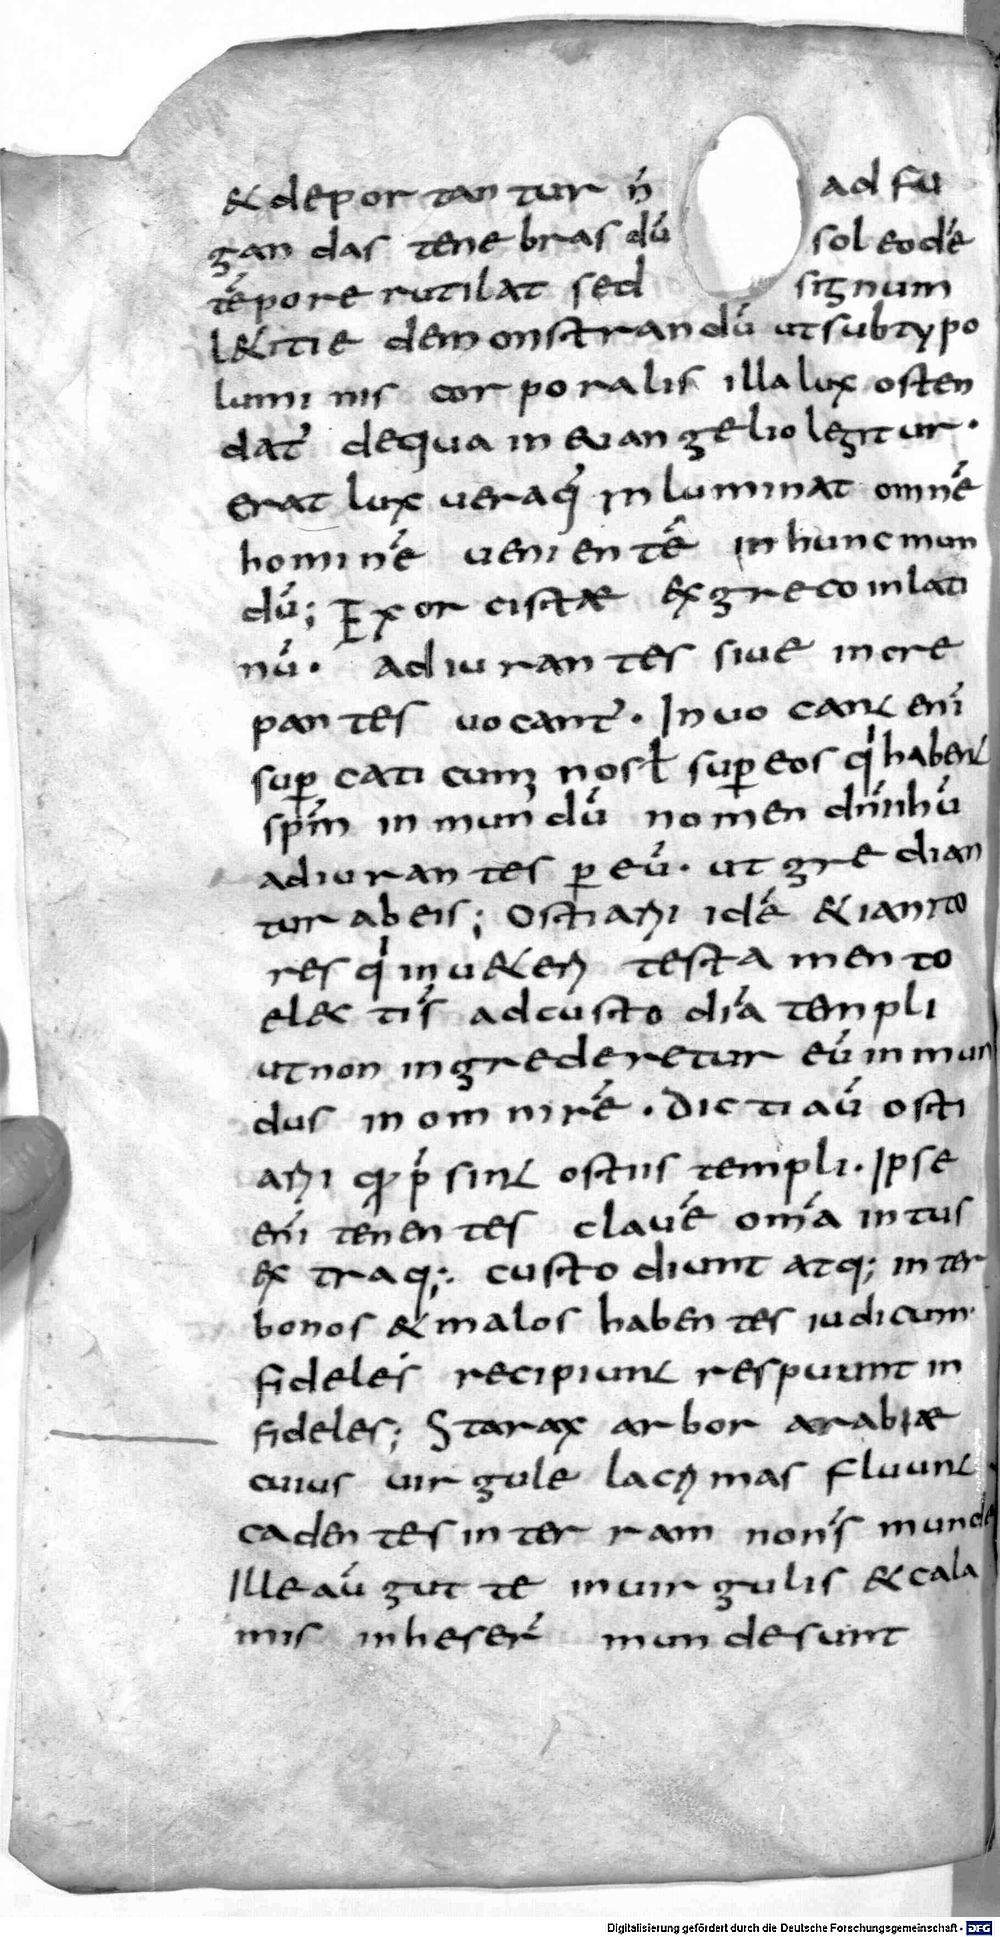 & deportantur n̄ ad fu
gandas tenebras dū sol eodē
tēpore rutilat sed signum
l&itie demonstrandū ut sub typo
luminis corporalis illa lux osten
dat̄ de qua in euangelio legitur·
erat lux uera q̄ inluminat omnē
hominē uenientē in hunc mun
dū; Exorcistae ex greco in lati
nū· adiurantes siue incre
pantes uocant̄· Inuocant enī
sup̱ caticuminos ł sup̱ eos qͥ habent
sp̄m inmundū nomen dn̄i ihū
adiurantes p̱ eū· ut gredian
tur ab eis; Ostiarii idē & ianito
res qͥ in u&eri testamento
elec tis̄ ad custodiā templi
ut non ingrederetur eū inmun
dus in omni rē· Dicti aū osti
arii qđ p̄ sint ostiis templi· Ipse
enī tenentes clauē om̄a intus
extraq;· custodiunt atq; inter
bonos & malos habentes iudicium·
fideles recipiunt respuunt in
fideles; Starax arbor arabiae
cuius uirgule lacrimas fluunt
cadentes in terram non s̄ munde
Ille aū gutte in uirgulis & cala
mis inheser̄ munde sunt
Digitalisierung gefördert durch die Deutsche Forschungsgemeinschaft - DFG